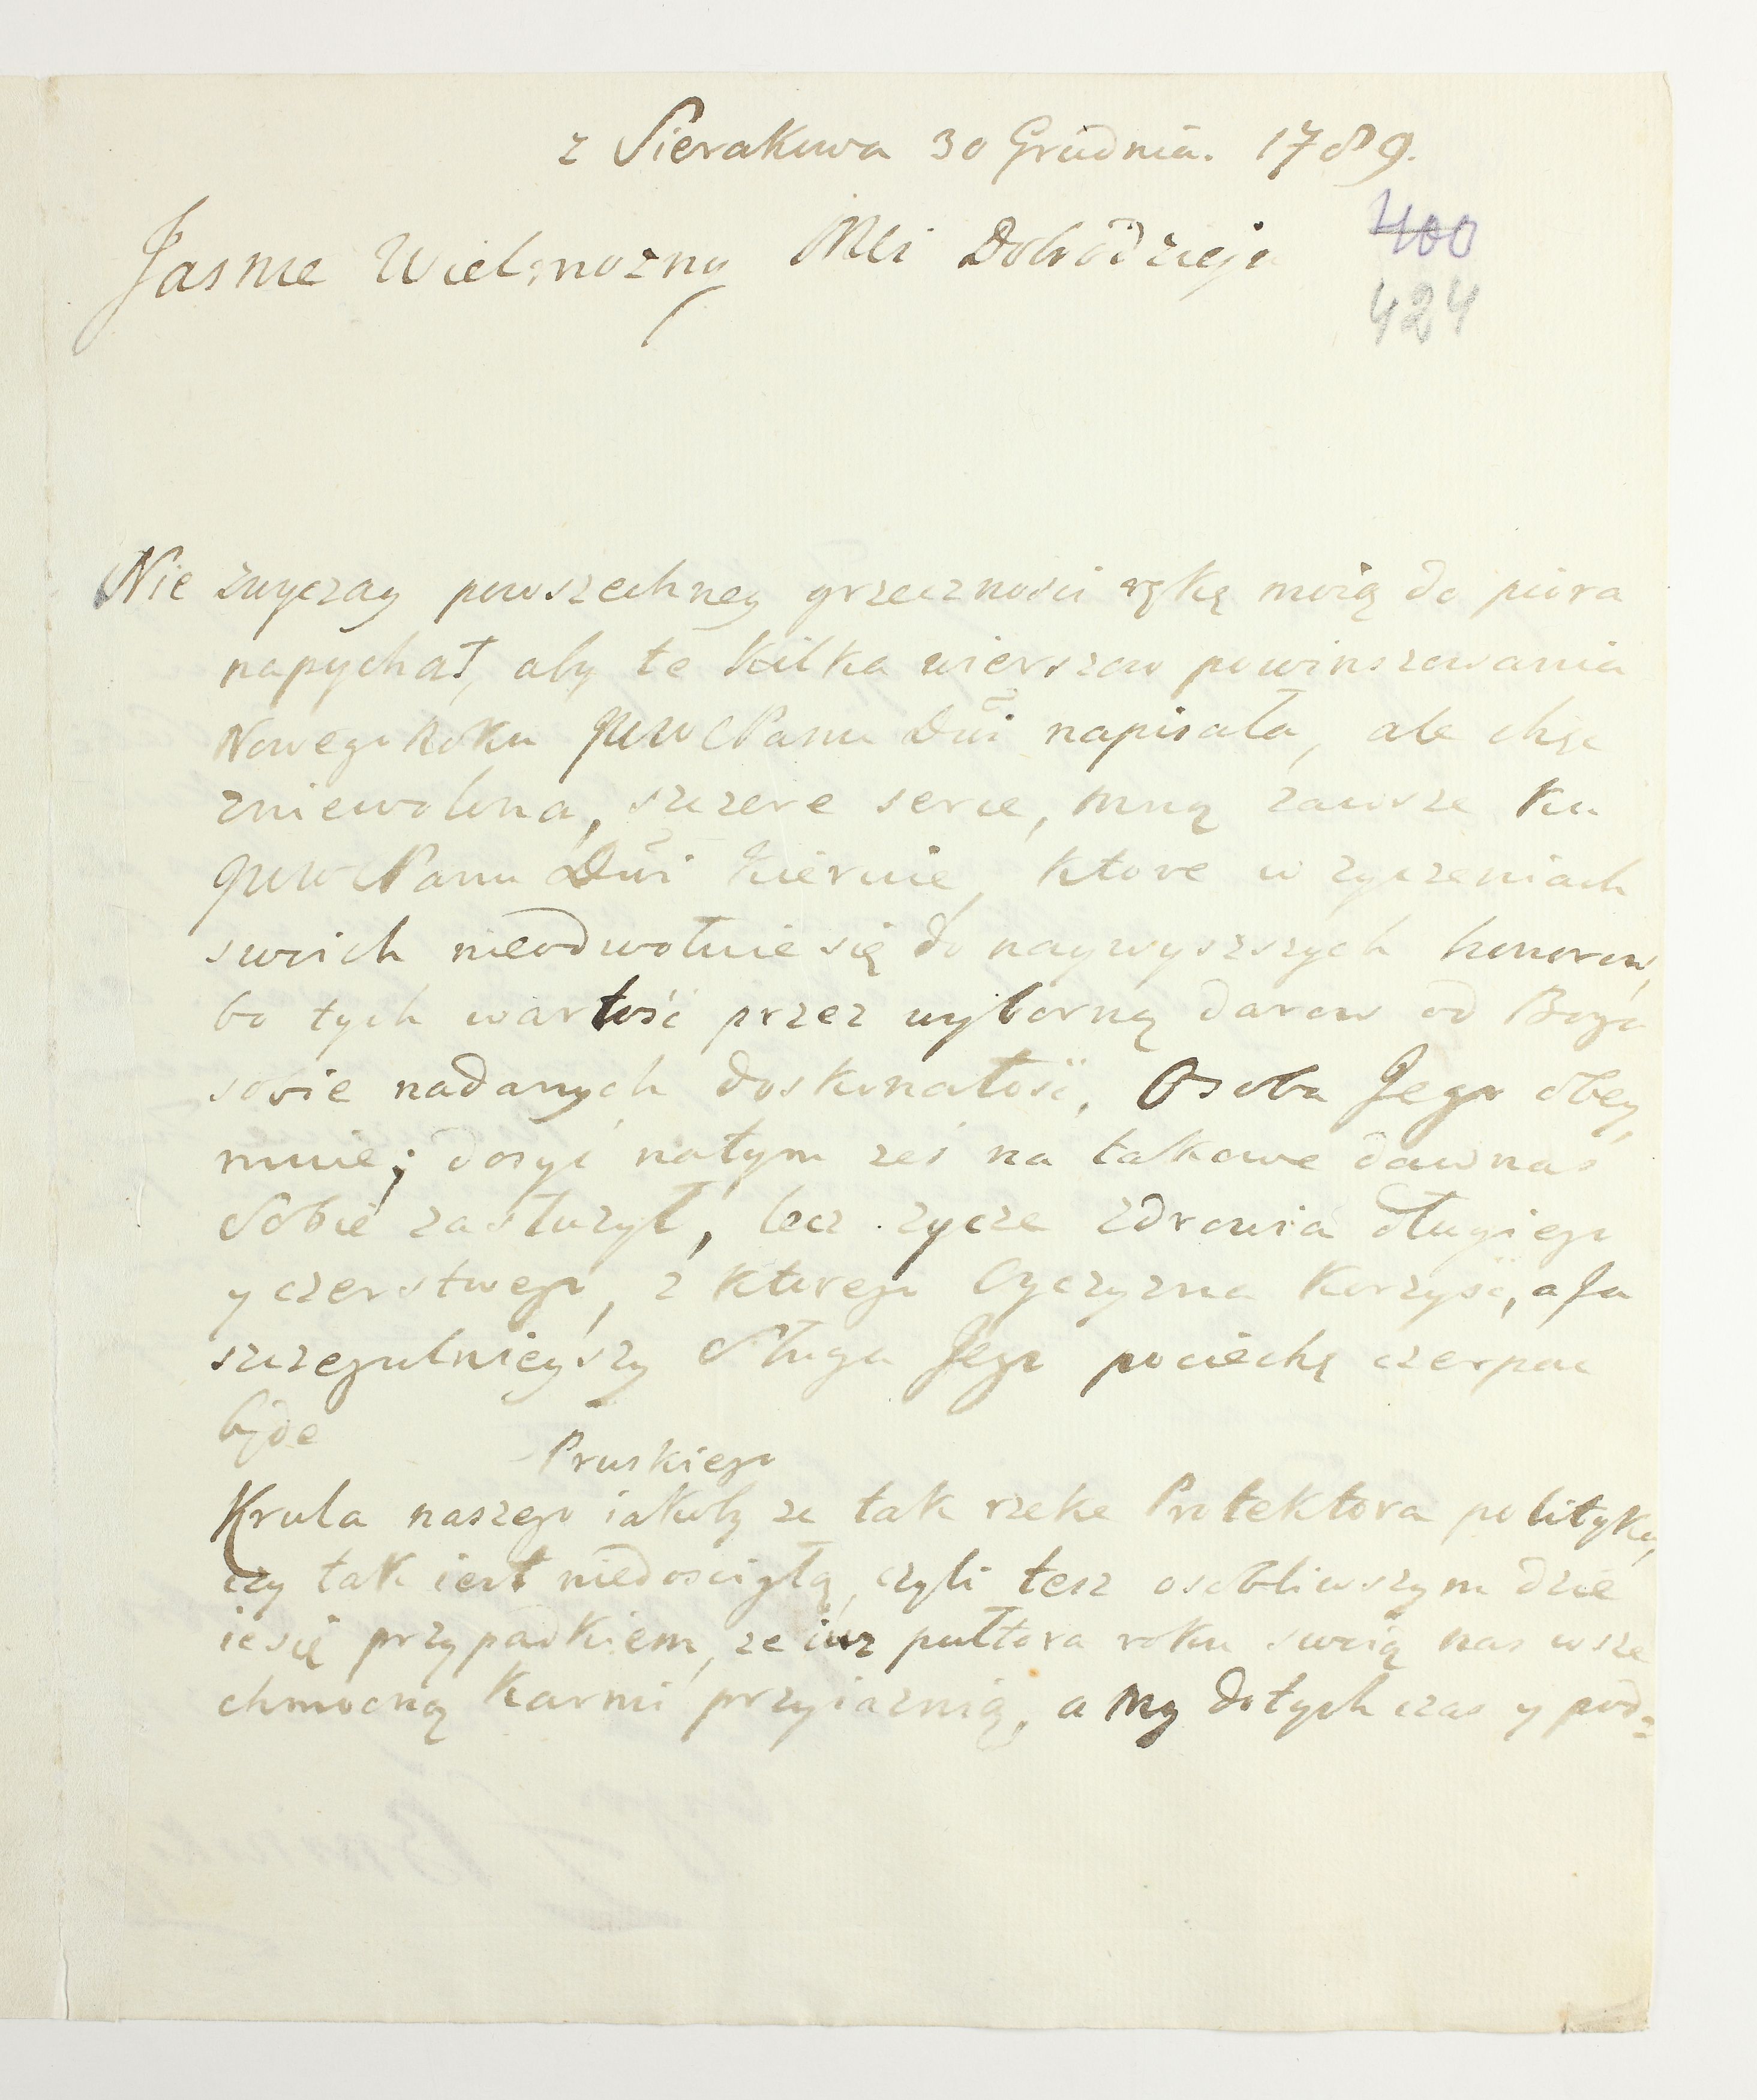 z Sierakowa 30 Grudnia. 1789.
Jasnie Wielmozny Mci Dobrodzieju
400
424
Nie zwyczay powszechney grzecznosci rękę moię do piora
napychał, aby te kilka wierszow powinszowania
Nowego Roku JWWPanu Dwi napisała, ale chęc
zniewolona, szczere serce, mną zawsze ku
JWWPanu Dwi kieruie, ktore w zyczeniach
swoich nieodwołnie się do naywyszszych honorow,
bo tych wartość przez wyborną darow od Boga
sobie nadanych doskonałość, Osoba Jego obey,
muie; dosyć natym ześ na takowe dawnas
Sobie zasłuzył, lecz zycze zdrowia długiego
y czerstwego, z ktorego Oyczyzna korzyść, a Ja
szczegulnieyszy Sługa Jego pociechę czerpac
będe
Pruskiego
Krula naszego iakoby ze tak rzeke Protektora polityka,
czy tak iest niedoscigłą, czyli tesz osobliwszym dzie
ie się przypadkiem, ze iuz pułtora roku swoią nas wsze
chmocną karmi przyiaznią, a my dotych czas y pod=